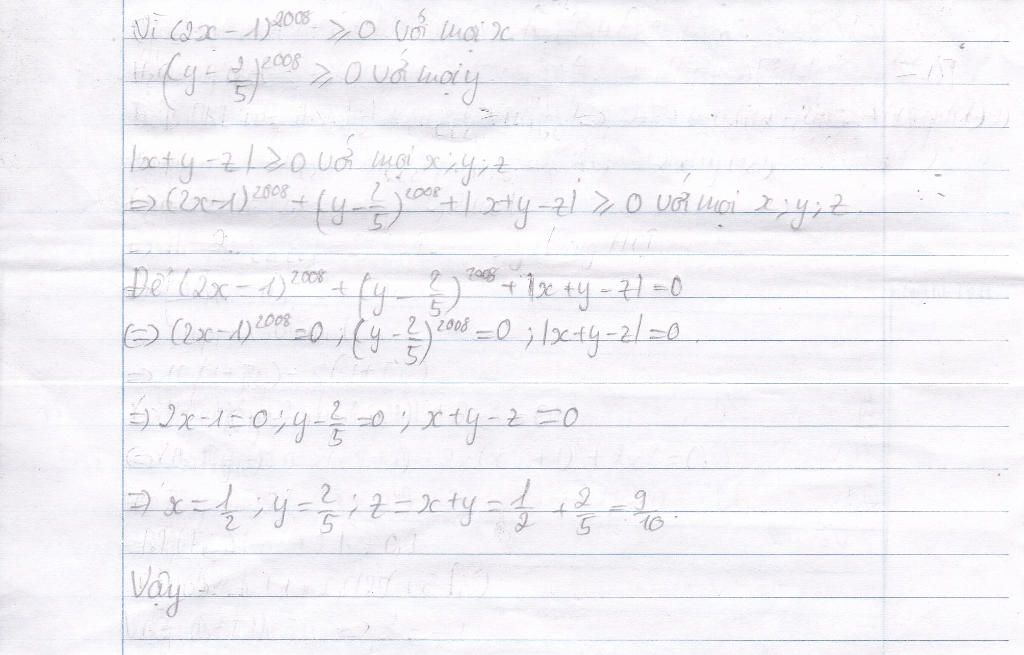 Vì (2x - 1)^2008 ≥ 0 với mọi x
(y - 2/5)^2008 ≥ 0 với mọi y
|x+y-z| ≥ 0 với mọi x; y; z
=> (2x-1)^2008 + (y - 2/5)^2008 + |x+y-z| ≥ 0 với mọi x; y; z.
Để (2x - 1)^2008 + (y - 2/5)^2008 + |x+y-z| = 0
(=) (2x-1)^2008 = 0 ; (y - 2/5)^2008 = 0 ; |x+y-z| = 0.
=> 2x-1 = 0 ; y - 2/5 = 0 ; x+y-z = 0
=> x = 1/2 ; y = 2/5 ; z = x+y = 1/2 + 2/5 = 9/10.
Vậy